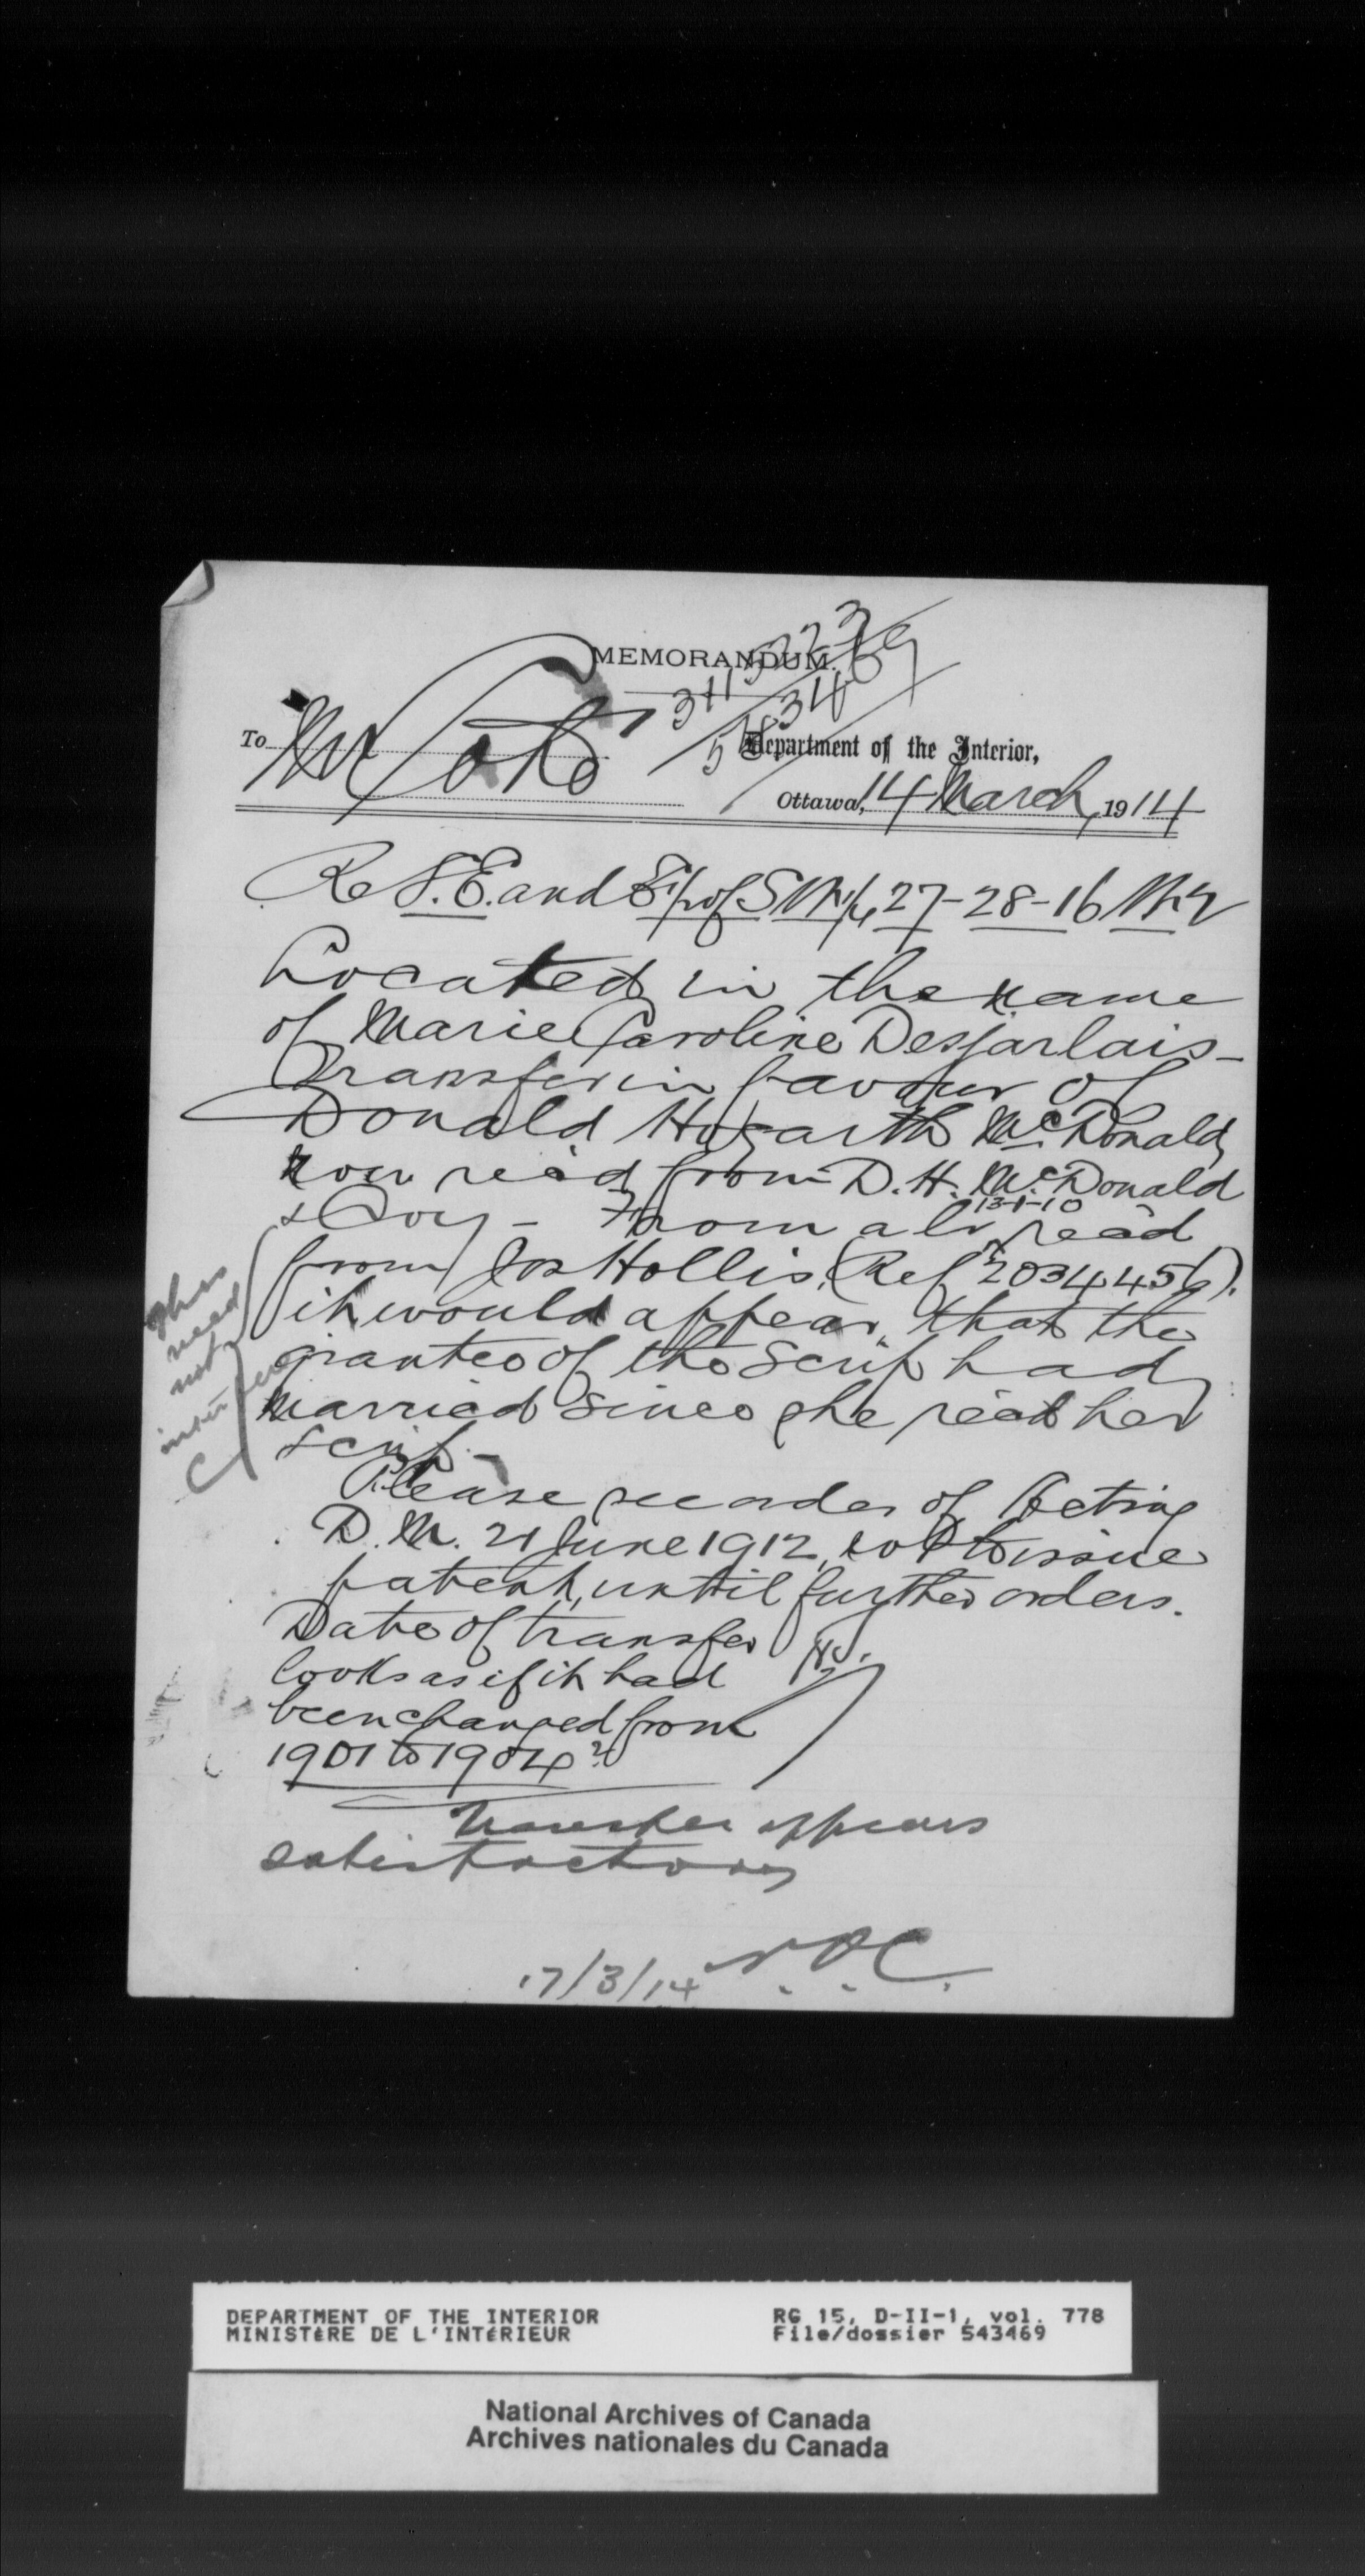 MEMORANDUM.
To Mr Coté
Department of the Interior,
Ottawa, 14 March, 1914
Re S.E. and E½ of S.W.¼, 27-28-16 W2
Located in the name
of Marie Caroline Desjarlais –
Transfer in favour of
Donald Hogarth McDonald
now rec'd from D. H. McDonald
& Coy – From a lr rec'd
13-1-10
from Jos Hollis, (Ref 2034456).
it would appear, that the
grantee of the Scrip had
married since she rec'd her
scrip. –
This
need
not
interfere
C
Please see order of Acting
D. M. 21 June 1912, not to issue
patent, until further orders.
Date of transfer
looks as if it had
been changed from
1901 to 1904?
Transfer appears
satisfactory
17/3/14 N.O.C.
DEPARTMENT OF THE INTERIOR
MINISTÈRE DE L'INTÉRIEUR
RG 15, D-II-1, vol. 778
File/dossier 543469
National Archives of Canada
Archives nationales du Canada